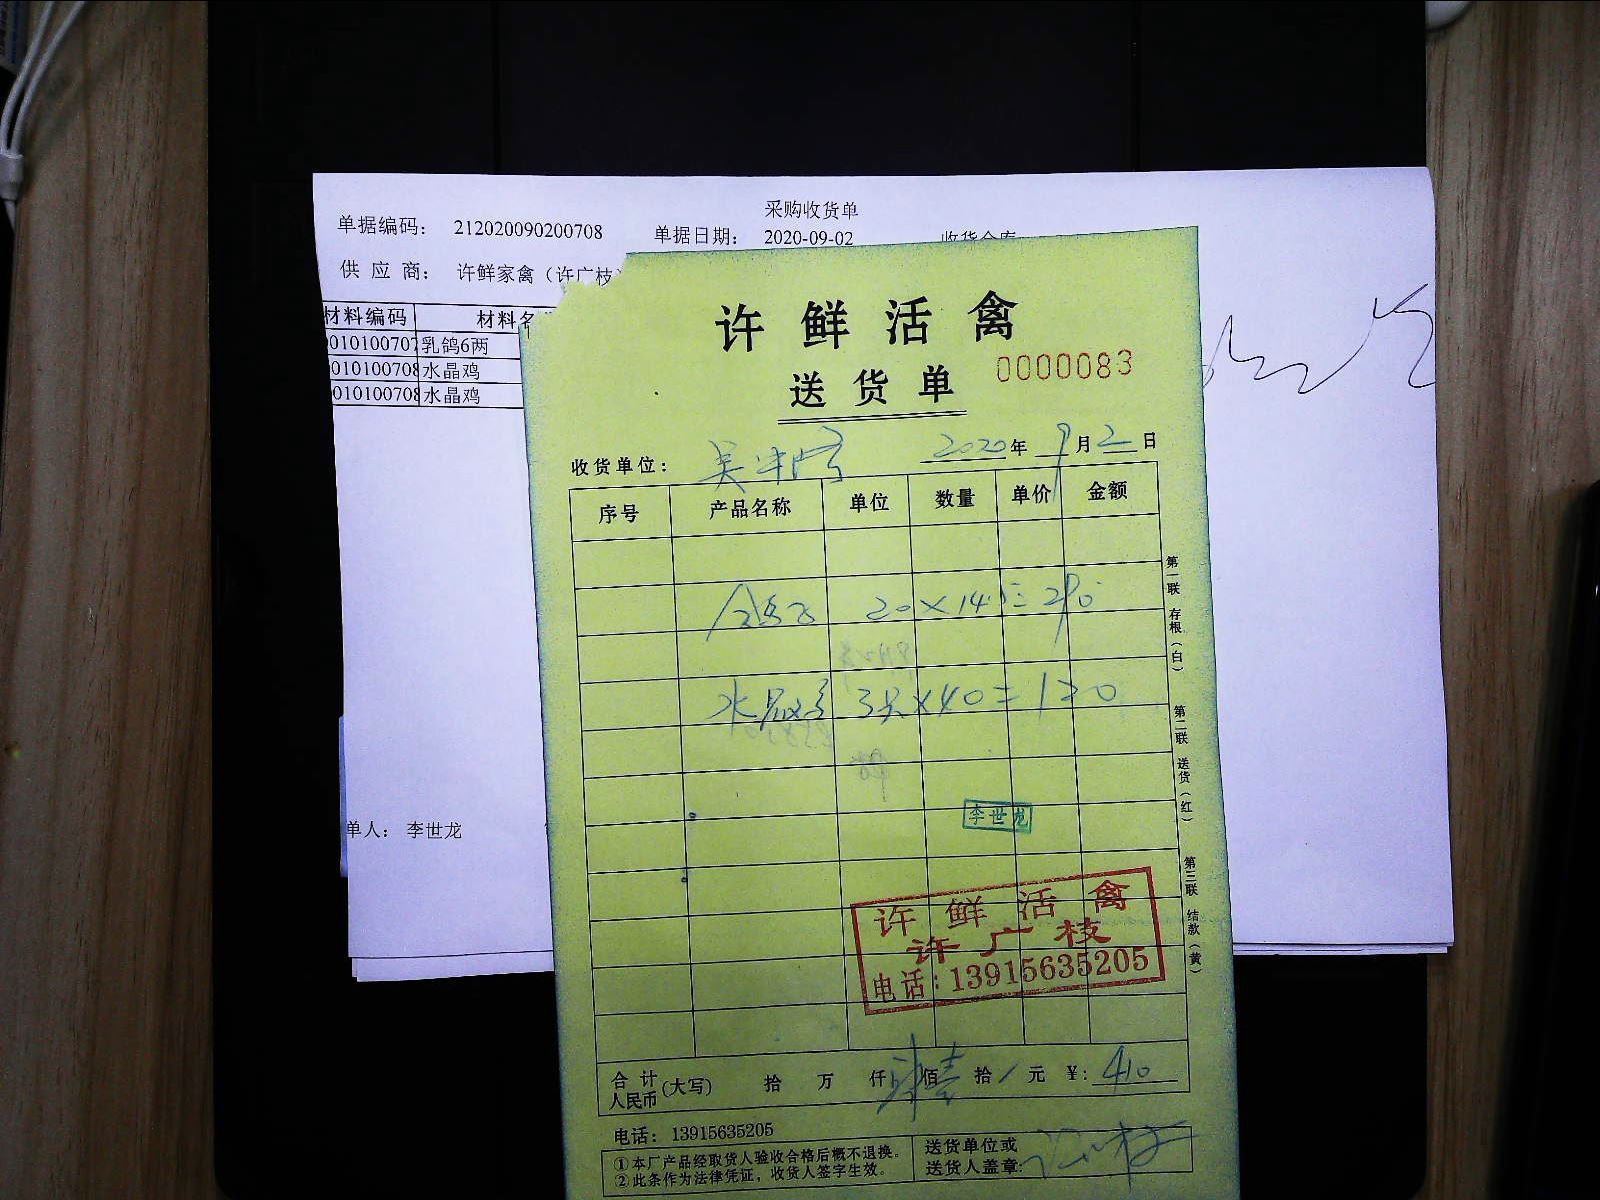 采购收货单
单据编码： 212020090200708 单据日期： 2020-09-02
供 应 商： 许鲜家禽（许广枝
材料编码 材料名
010100707 乳鸽6两
010100708 水晶鸡
010100708 水晶鸡
单人： 李世龙
许鲜活禽
送货单 0000083
收货单位： 2020年 9月2日
序号 产品名称 单位 数量 单价 金额
20×14.5=290
水晶鸡 3只×40=120
李世龙
许鲜活禽
许广枝
电话：13915635205
合计人民币(大写) 拾 万 仟 肆佰壹拾 元 ¥：410
电话：13915635205
①本厂产品经取货人验收合格后概不退换。
②此条作为法律凭证，收货人签字生效。
送货单位或
送货人盖章：
第一联 存根（白）
第二联 送货（红）
第三联 结款（黄）